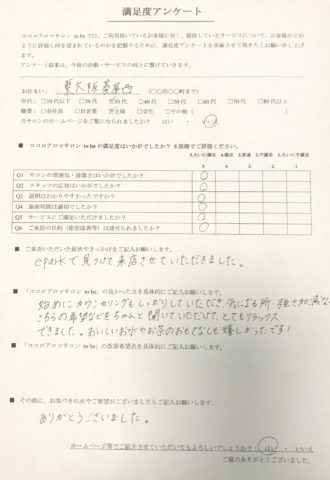 満足度アンケート
ココロアロマサロン to be では、ご利用頂いているお客様に対し、提供しているサービスについて、お客様がどのように評価し何を望まれているのかを把握するために、満足度アンケートを実施させて頂きたくお願い申し上げます。
アンケート結果は、今後の活動・サービスの向上に繋げていきます。
お住まい: 東大阪菱屋西 (○○市○○町まで)
年代: □10代以下 □20代 ☑30代 □40代 □50代 □60代 □70代 □80代以上
職業: □会社員 □自営業 ☑主婦 □学生 □その他( )
当サロンのホームページをご覧になられましたか? はい ・ いいえ
■ ココロアロマサロン to be の満足度はいかがでしたか? 5段階でご評価ください。
5.大いに満足 4.満足 3.普通 2.不満足 1.大いに不満足
5 4 3 2 1
Q1 サロンの雰囲気・清潔さはいかがでしたか? ○
Q2 スタッフの応対はいかがでしたか? ○
Q3 説明はわかりやすかったですか? ○
Q4 施術時間は適切でしたか? ○
Q5 サービスにご満足いただけましたか? ○
Q6 ご来店の目的(症状改善等)は達せられましたか? ○
■ ご来店いただいた症状やきっかけをご記入お願いします。
eparkで見つけて来店させていただきました。
■ 「ココロアロマサロン to be」の良かった点を具体的にご記入お願いします。
始めにカウンセリングもしっかりしていただき、気になる所、強さ加減など
こちらの希望などをちゃんと聞いていただけて、とてもリラックス
できました。おいしいお水やお茶のおもてなしも嬉しかったです!
■ 「ココロアロマサロン to be」の改善希望点を具体的にご記入お願いします。
■ その他に、お気づきの点やご要望がございましたらご記入お願いします。
ありがとうございました。
ホームページ等でご紹介させていただいてもよろしいでしょうか?: はい ・ いいえ
ご協力ありがとうございました。